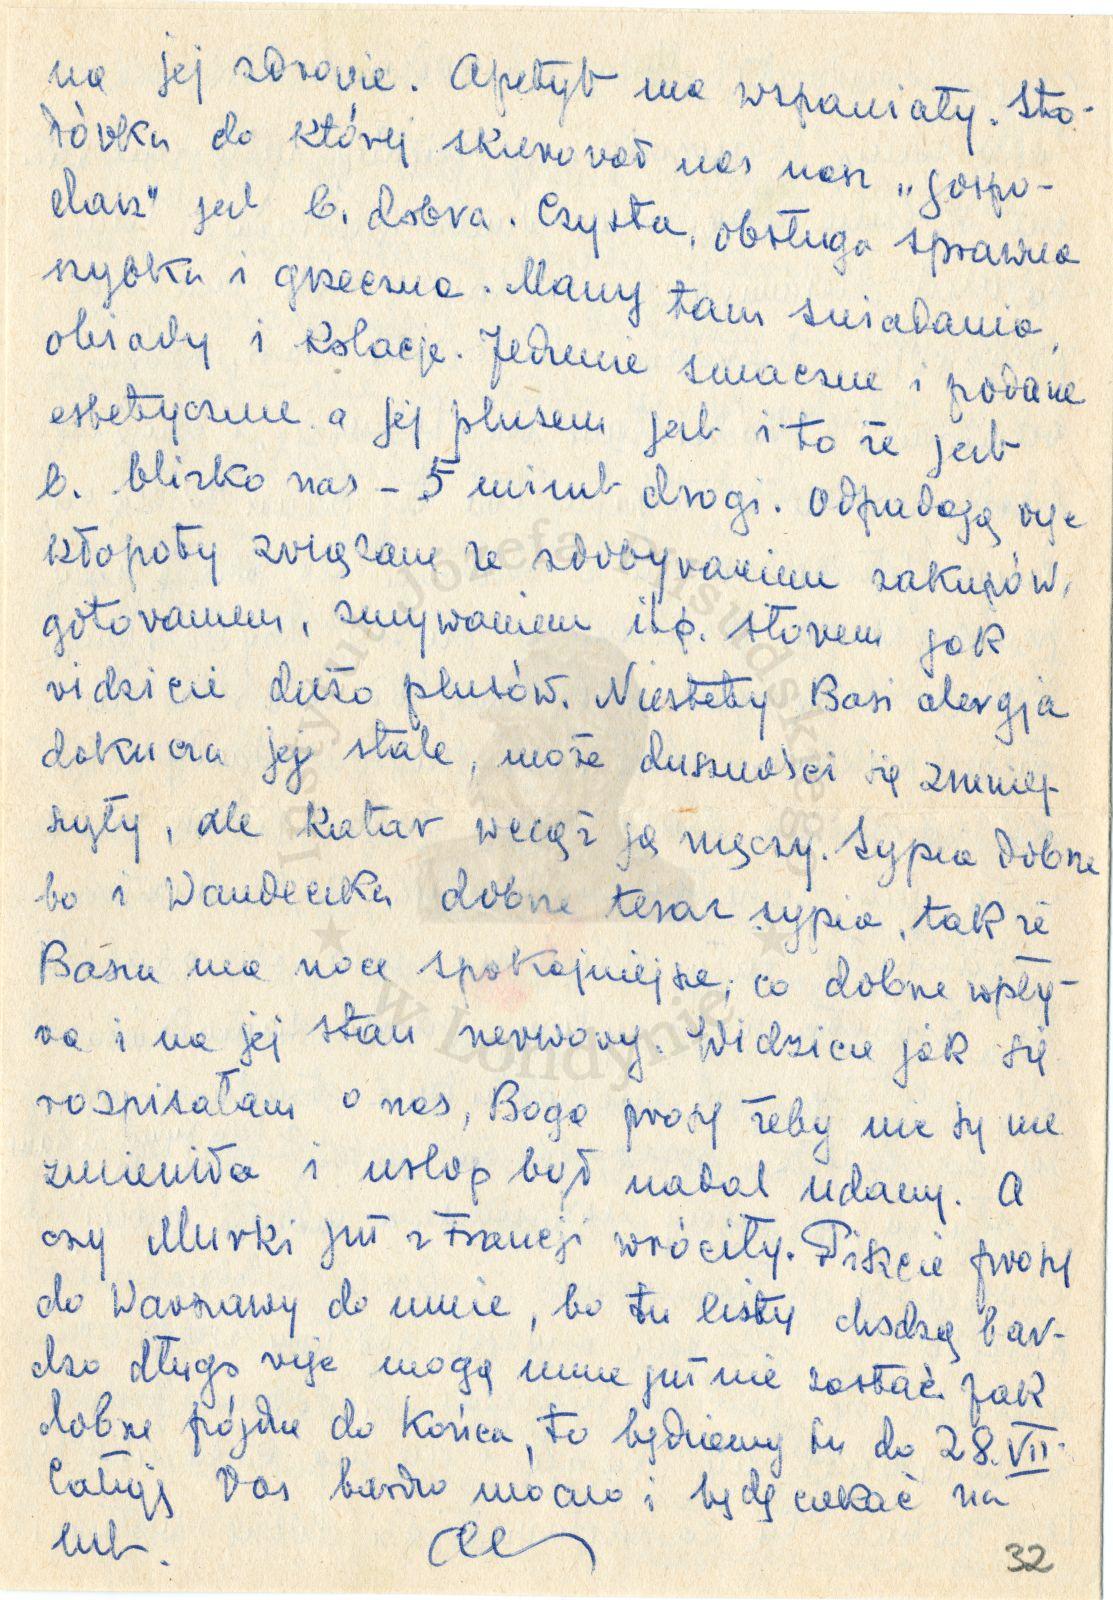 na jej zdrowie. Apetyt ma wspaniały. Sto-
łówka do której skierował nas nasz „gospo-
darz" jest b. dobra. Czysta, obsługa sprawna
szybka i grzeczna. Mamy tam śniadania,
obiady i kolacje. Jedzenie smaczne i podane
estetycznie a jej plusem jest i to że jest
b. blizko nas – 5 minut drogi. Odpadają więc
kłopoty związane ze zdobywaniem zakupów,
gotowaniem, zmywaniem itp. słowem jak
widzicie dużo plusów. Niestety Basi alergja
dokucza jej stale, może duszności się zmniej-
szyły, ale katar wciąż ją męczy. Sypia dobrze
bo i Wandeczka dobrze teraz sypia, tak że
Basia ma noce spokojniejsze, co dobrze wpły-
wa i na jej stan nerwowy. Widzicie jak się
rozpisałam o nas, Boga proszę żeby nic się nie
zmieniło i urlop był nadal udany. A
czy Murki już z Francji wróciły. Piszcie proszę
do Warszawy do mnie, bo tu listy chodzą bar-
dzo długo więc mogą mnie już nie zastać jak
dobrze pójdzie do końca, to będziemy tu do 28.VII.
Całuję Was bardzo mocno i będę czekać na
list.
32
Instytut Józefa Piłsudskiego
★ w Londynie ★